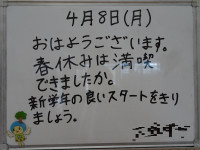 4月8日(月)
おはようございます。
春休みは満喫
できましたか。
新学年の良いスタートをきり
ましょう。